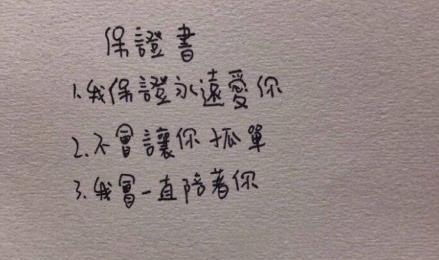 保證書
1.我保證永遠愛你
2.不會讓你孤單
3.我會一直陪著你